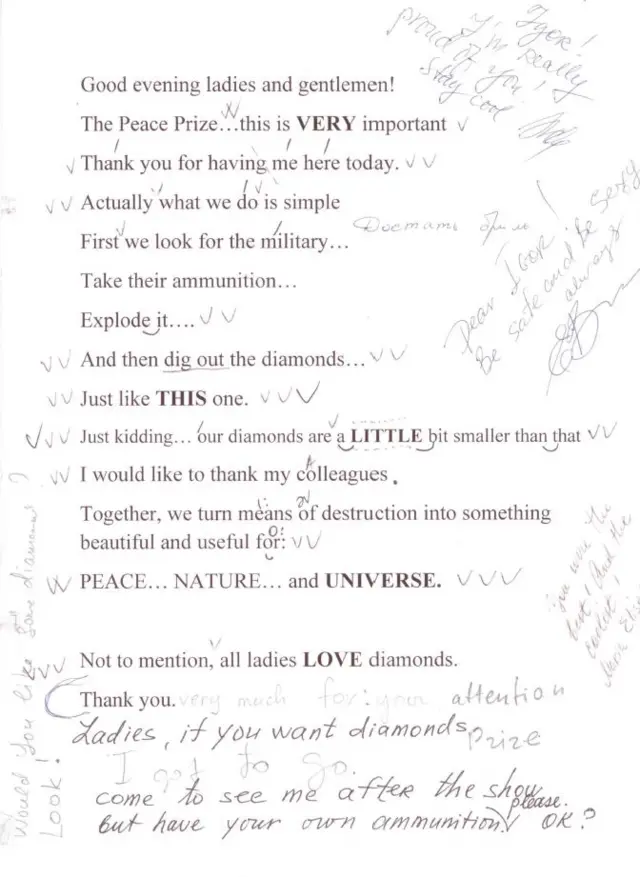 Igor!
I'm really
proud of you!
Stay cool
Good evening ladies and gentlemen!
The Peace Prize...this is VERY important
Thank you for having me here today.
Actually what we do is simple
First we look for the military...
Достать
Take their ammunition...
Explode it....
Dear Igor!
Be safe and be sexy
always
And then dig out the diamonds...
Just like THIS one.
Just kidding... our diamonds are a LITTLE bit smaller than that
I would like to thank my colleagues.
Together, we turn means of destruction into something
beautiful and useful for:
PEACE... NATURE... and UNIVERSE.
You were the
best! And the
coolest!
Not to mention, all ladies LOVE diamonds.
Thank you. very much for: your attention
prize
Ladies, if you want diamonds
I got to go.
come to see me after the show please.
but have your own ammunition! OK?
Would you like some diamonds?
Look!